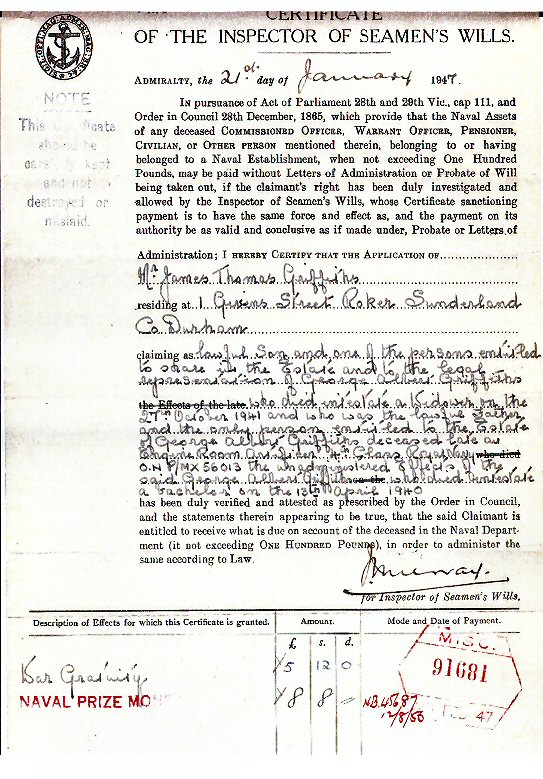 CERTIFICATE
OF THE INSPECTOR OF SEAMEN'S WILLS.
ADMIRALTY, the 21st day of January 1947.
NOTE
This Certificate
should be
carefully kept
and not
destroyed or
mislaid.
In pursuance of Act of Parliament 28th and 29th Vic., cap 111, and
Order in Council 28th December, 1865, which provide that the Naval Assets
of any deceased COMMISSIONED OFFICER, WARRANT OFFICER, PENSIONER,
CIVILIAN, OR OTHER PERSON mentioned therein, belonging to or having
belonged to a Naval Establishment, when not exceeding One Hundred
Pounds, may be paid without Letters of Administration or Probate of Will
being taken out, if the claimant's right has been duly investigated and
allowed by the Inspector of Seamen's Wills, whose Certificate sanctioning
payment is to have the same force and effect as, and the payment on its
authority be as valid and conclusive as if made under, Probate or Letters of
Administration; I HEREBY CERTIFY THAT THE APPLICATION OF
Mr James Thomas Griffiths
residing at 1 Givens Street Roker Sunderland
Co Durham
claiming as lawful Son and one of the persons entitled
to share in the Estate and to the legal
representation of George Albert Griffiths
the Effects of the late who died intestate a Widower on the
27th October 1941 and who was the lawful Father
and the only person entitled to the Estate
of George Albert Griffiths deceased late an
Engine Room Artificer 4th Class Royal Navy who died
O.N P/MX 56013 the unadministered Effects of the
said George Albert Griffiths on the who died intestate
a bachelor on the 13th April 1940
has been duly verified and attested as prescribed by the Order in Council,
and the statements therein appearing to be true, that the said Claimant is
entitled to receive what is due on account of the deceased in the Naval Depart-
ment (it not exceeding ONE HUNDRED POUNDS), in order to administer the
same according to Law.
for Inspector of Seamen's Wills.
Description of Effects for which this Certificate is granted.
Amount.
Mode and Date of Payment.
£ s. d.
War Gratuity
5 12 0
MISC.
91681
47
NAVAL PRIZE MON
8 8 -
NB.45687
12/8/50